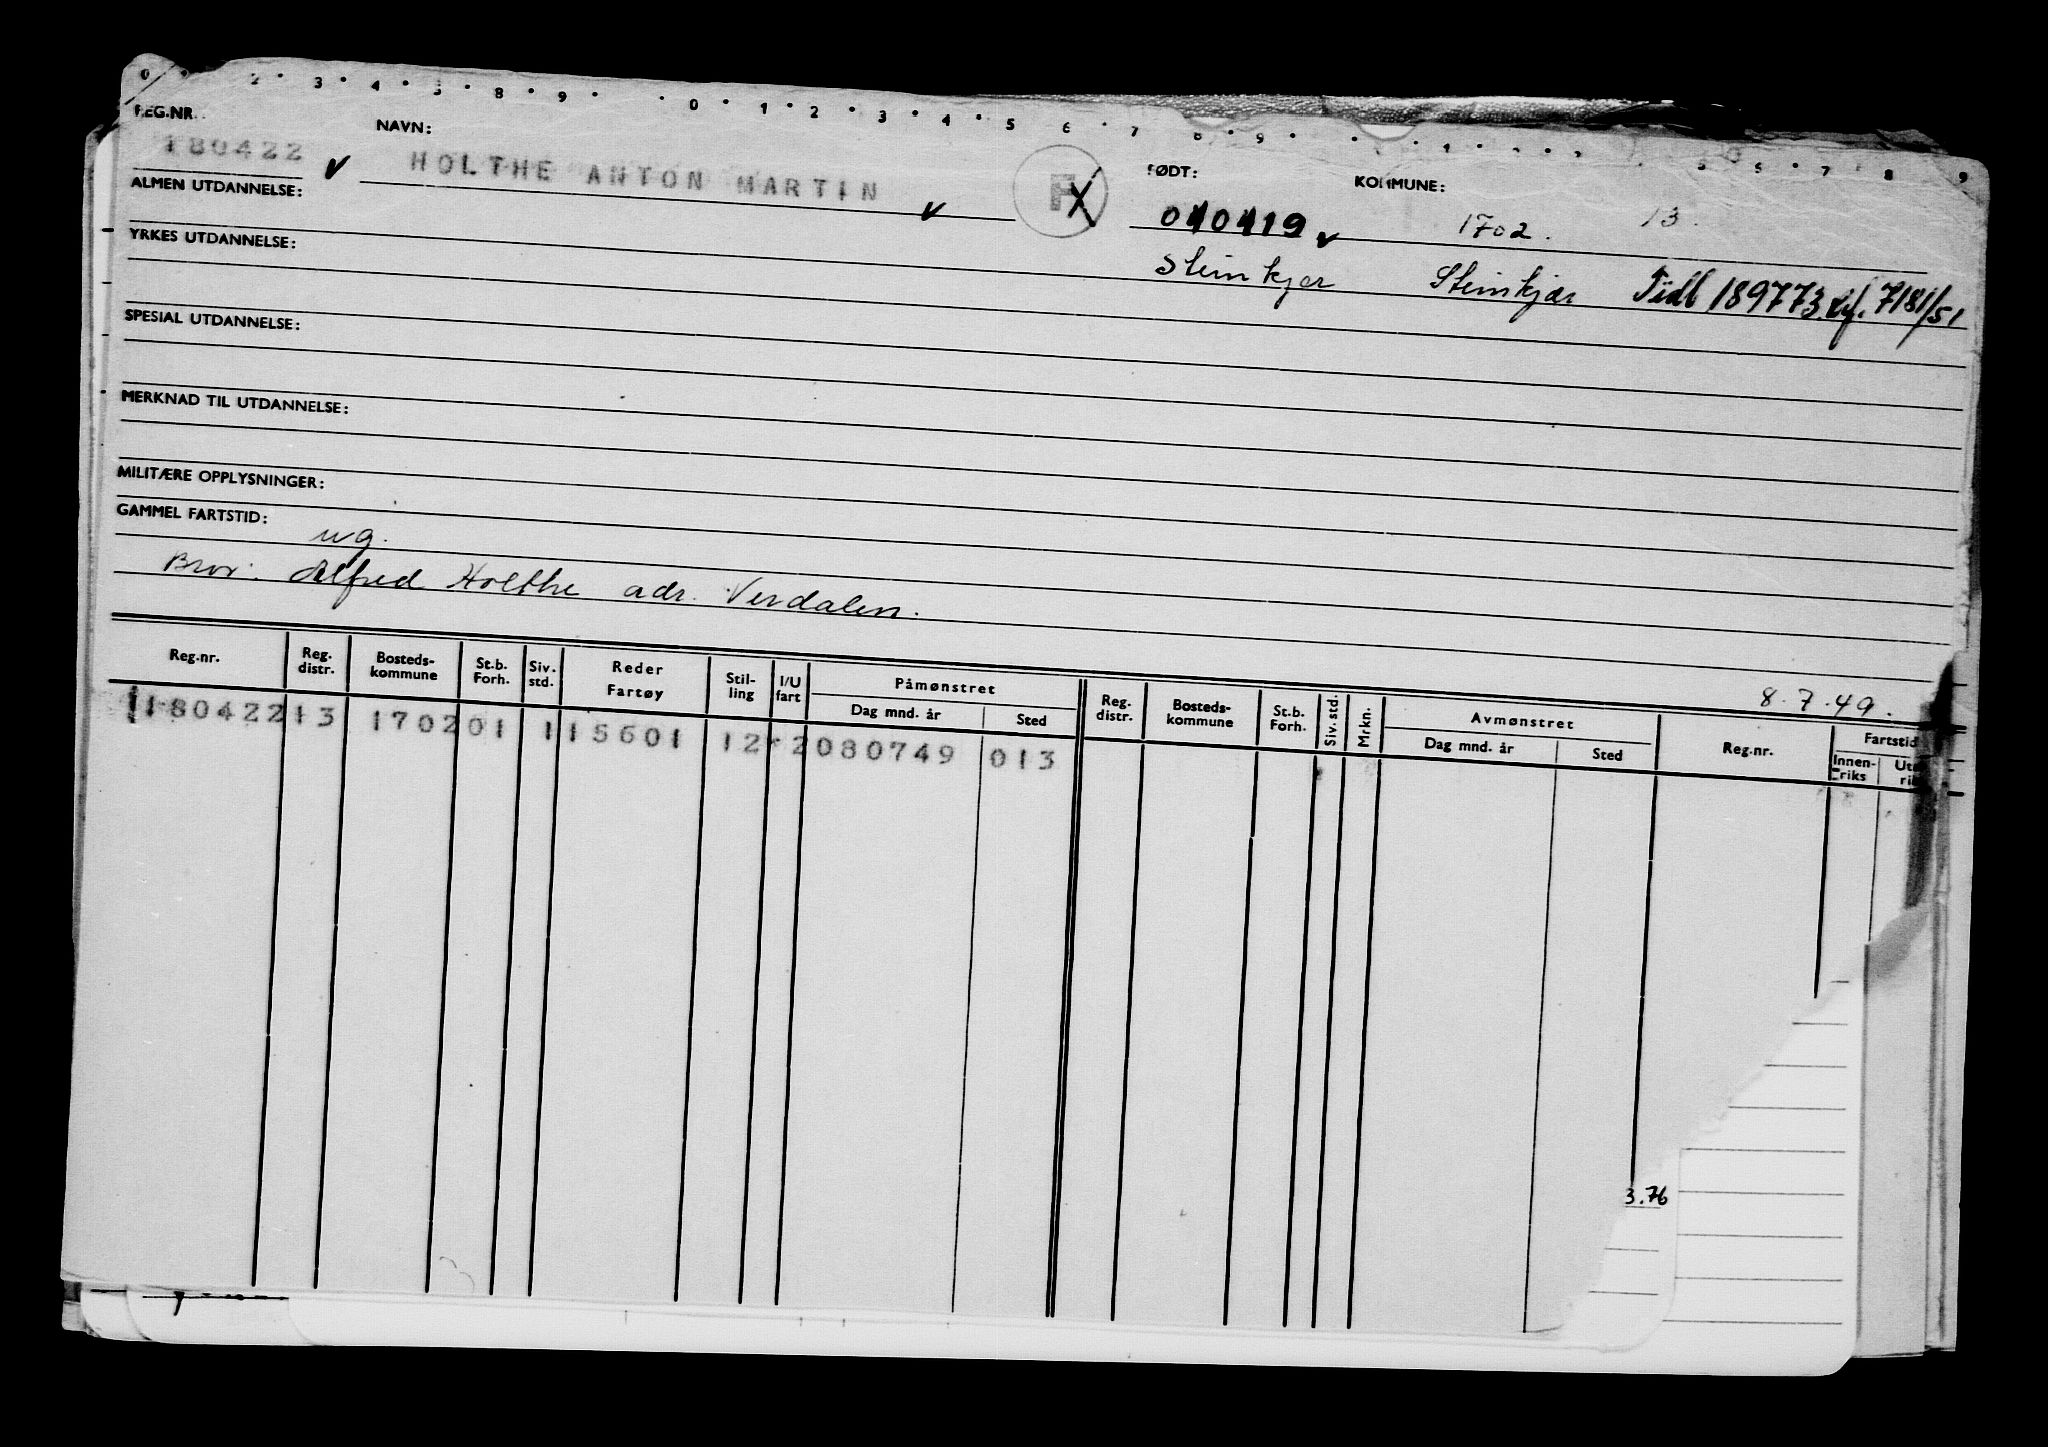 0 · 2 · 3 · 4 · 5 · 8 · 9 · · 0 · 1 · 2 · 3 · 4 · 5 · 6 · 7 · 8 · 9 · 6 · 7 · 8 · 9
REG.NR. NAVN: FØDT: KOMMUNE:
180422 v HOLTHE ANTON MARTIN v F X 040419 v 1702. 13.
ALMEN UTDANNELSE:
Steinkjer Steinkjær Tidl 189773 kf. 7181/51
YRKES UTDANNELSE:
SPESIAL UTDANNELSE:
MERKNAD TIL UTDANNELSE:
MILITÆRE OPPLYSNINGER:
GAMMEL FARTSTID:
ug.
Bror: Alfred Holthe adr. Verdalen.
8.7.49.
Reg.nr. Reg. distr. Bosteds-kommune St.b. Forh. Siv. std. Reder Fartøy Stil-ling I/U fart Påmønstret Dag mnd. år Sted Reg. distr. Bosteds-kommune St.b. Forh. Siv. std. Mrkn. Avmønstret Dag mnd. år Sted Reg.nr. Fartstid Innen-riks
180422 13 1702 01 1 115601 12 2 080749 013
3.76